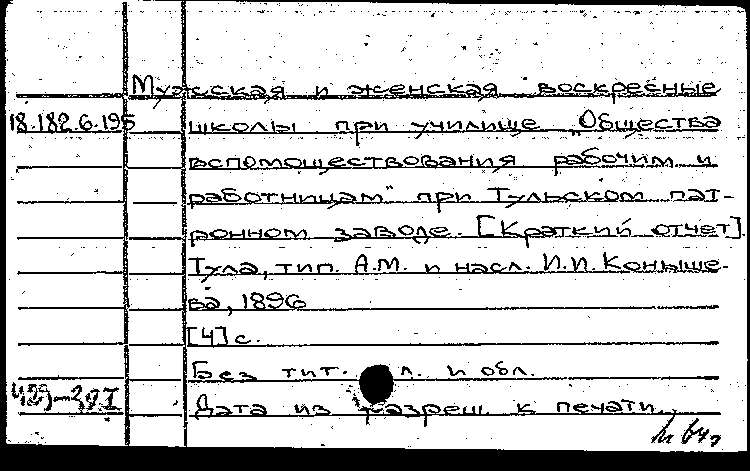 Мужская и женская воскресные
18.182.6.195 школы при училище „Общества
вспомоществования рабочим и
работницам" при Тульском пат-
ронном заводе. [Краткий отчет].
Тула, тип. А.М. и насл. И.И. Коныше-
ва, 1896
[4] с.
Без тит. л. и обл.
Дата из разреш. к печати.